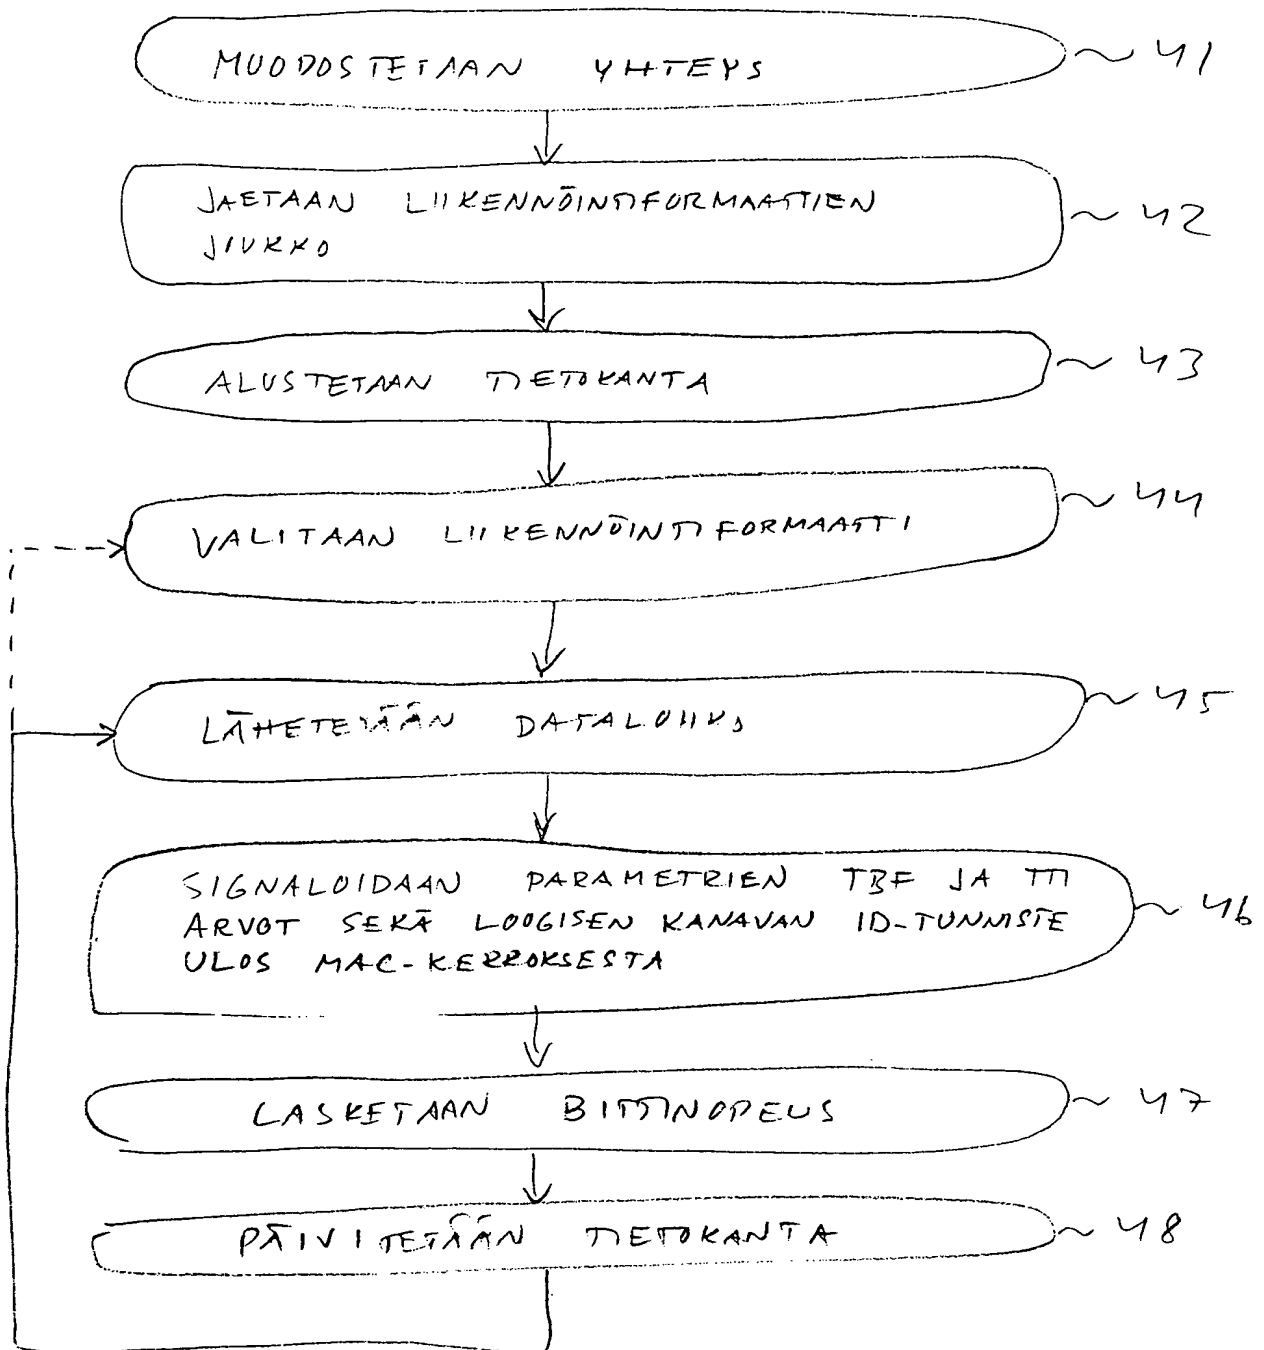 MUODOSTETAAN YHTEYS ~ 41
JAETAAN LIIKENNÖINTIFORMAATTIEN ~ 42
JOUKKO
ALUSTETAAN TIETOKANTA ~ 43
VALITAAN LIIKENNÖINTIFORMAATTI ~ 44
LÄHETETÄÄN DATALOHKO ~ 45
SIGNALOIDAAN PARAMETRIEN TBF JA TTI
ARVOT SEKÄ LOOGISEN KANAVAN ID-TUNNISTE ~ 46
ULOS MAC-KERROKSESTA
LASKETAAN BITTINOPEUS ~ 47
PÄIVITETÄÄN TIETOKANTA ~ 48